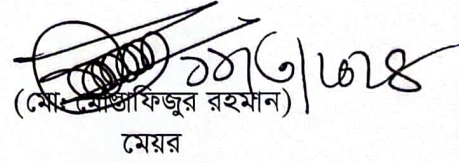 (মোঃ মোস্তাফিজুর রহমান)
মেয়র